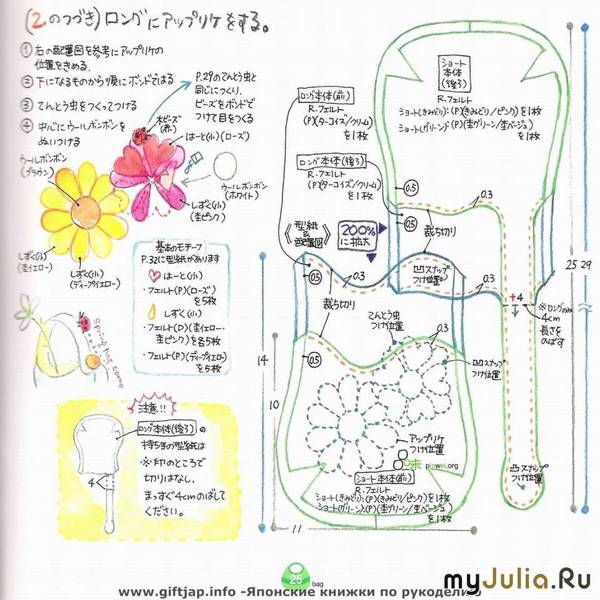 (2.のつづき) ロングにアップリケをする。
① 右の配置図を参考にアップリケの
位置をきめる。
② 下になるものから順にボンドではる
③ てんとう虫をつくってつける
④ 中心にウールボンボンを
ぬいつける
P.29のてんとう虫と
同じにつくり、
ビーズをボンドで
つけて目をつくる
ウールボンボン
(ブラウン)
はーと(小)(ローズ)
ウールボンボン
(ホワイト)
しずく(小)
(杢ピンク)
しずく(小)
(杢イエロー)
しずく(小)
(ディープイエロー)
基本のモチーフ
P.32に型紙があります
はーと(小)
・フェルト(P)(ローズ)
を5枚
しずく(小)
・フェルト(D)(杢イエロー・
杢ピンク)を各5枚
・フェルト(P)(ディープイエロー)
を5枚
Spring has come
注意!!
ロング本体(後ろ)
持ち手の型紙は
※印のところで
切りはなし、
まっすぐ4cmのばして
ください。
4
ロング本体(前)
R.フェルト
(P)(ターコイズ/クリーム)
を1枚
ロング本体(後ろ)
R.フェルト
(P)(ターコイズ/クリーム)
を1枚
ショート
本体
(後ろ)
R.フェルト
ショート(きみどり):(P)(きみどり/ピンク)を1枚
ショート(グリーン):(P)(杢グリーン/杢ベージュ)
を1枚
0.5
0.5
0.3
0.3
《型紙&配置図》
200%
に拡大
裁ち切り
凹スナップ
つけ位置
0.3
0.5
0.3
裁ち切り
+4
※ロングのみ
4cm
長さを
のばす
25
29
てんとう虫
つけ位置
0.5
凸スナップ
つけ位置
14
10
アップリケ
つけ位置
ショート本体(前)
R.フェルト
ショート(きみどり):(P)(きみどり/ピンク)を1枚
ショート(グリーン):(P)(杢グリーン/杢ベージュ)
を1枚
凹スナップ
つけ位置
11
25
bag
myJulia.Ru
www.giftjap.info -Японские книжки по рукоделию